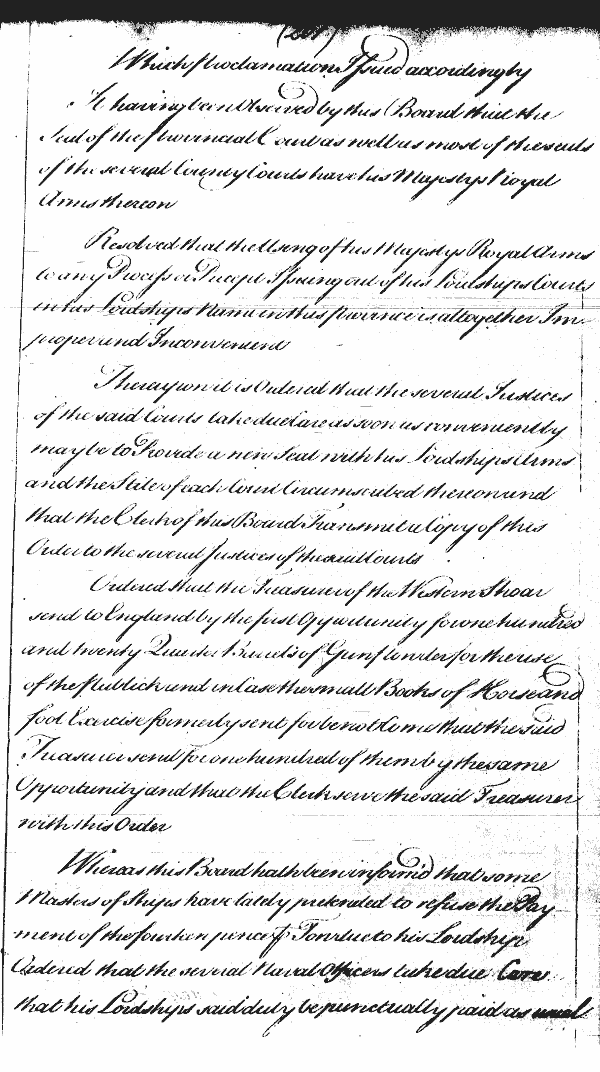 Which Proclamation Issued accordingly
It having been Observed by this Board that the
Seal of the Provincial Court as well as most of the seals
of the several County Courts have his Majestys Royal
Arms thereon
Resolved that the Using of his Majestys Royal Arms
to any Process or Precept Issuing out of his Lordships Courts
in his Lordships Name in this province is altogether Im
proper and Inconvenient
Thereupon it is Ordered that the several Justices
of the said Courts take due Care as soon as conveniently
may be to Provide a new Seal with his Lordships Arms
and the Stile of each Court Circumscribed thereon and
that the Clerk of this Board Transmit a Copy of this
Order to the several Justices of the said Courts
Ordered that the Treasurer of the Western Shoar
send to England by the first Opportunity for one hundred
and twenty Quarter Barrels of Gunpowder for the use
of the Publick and in Case the small Books of Horse and
foot Exercise formerly sent for be not Come that the said
Treasurer send for one hundred of them by the same
Opportunity and that the Clerk serve the said Treasurer
with this Order
Whereas this Board hath been inform'd that some
Masters of Ships have lately pretended to refuse the Pay
ment of the fourteen pence Ton due to his Lordship
Ordered that the several Naval Officers take due Care
that his Lordships said duty be punctually paid as usual